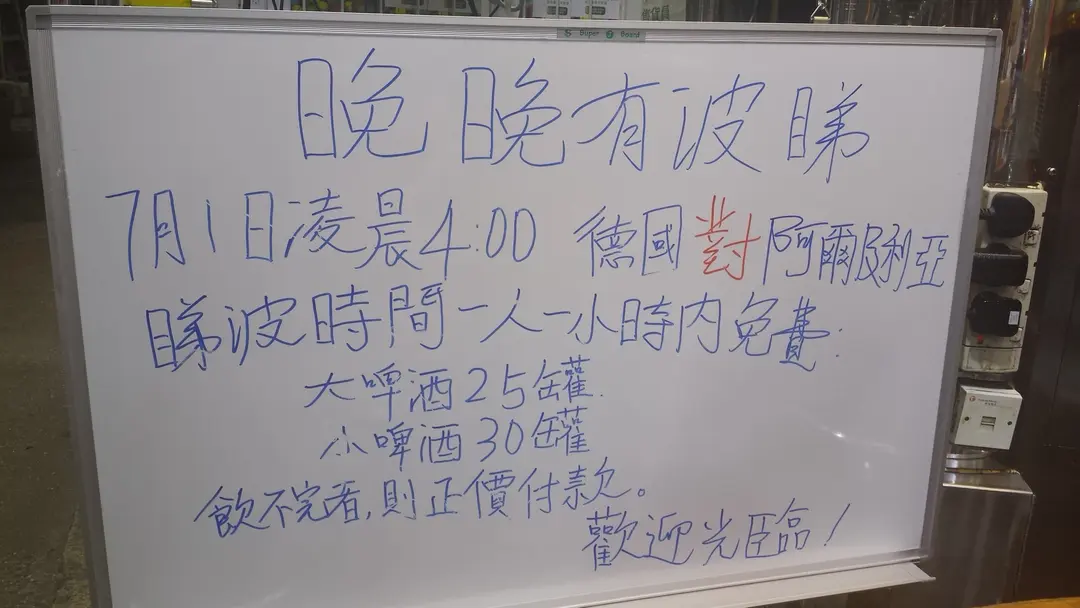 Super Board
晚晚有波睇
7月1日凌晨4:00 德國對阿爾及利亞
睇波時間一人一小時內免費.
大啤酒25罐.
小啤酒30罐
飲不完看,則正價付款。
歡迎光臨!